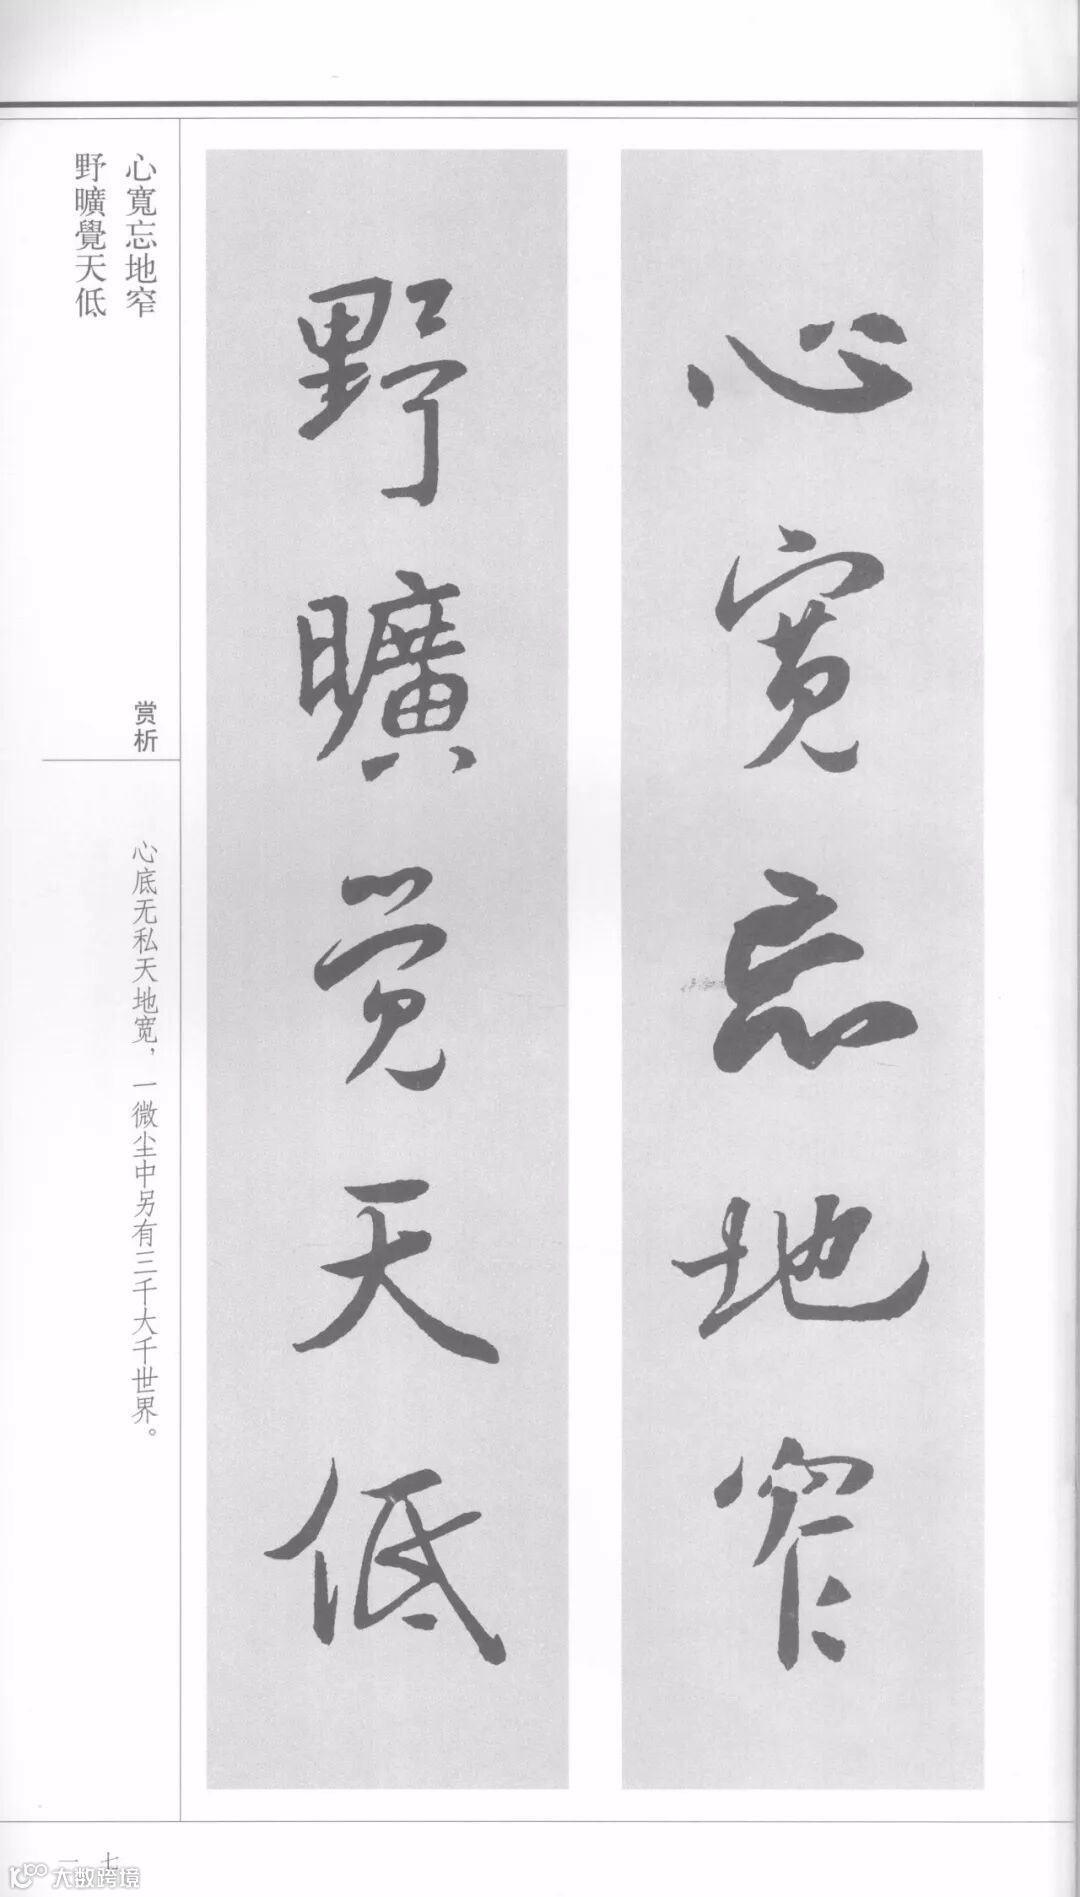 心寬忘地窄
野曠覺天低
心宽忘地窄
野曠觉天低
赏析
心底无私天地宽，一微尘中另有三千大千世界。
一七
大数跨境